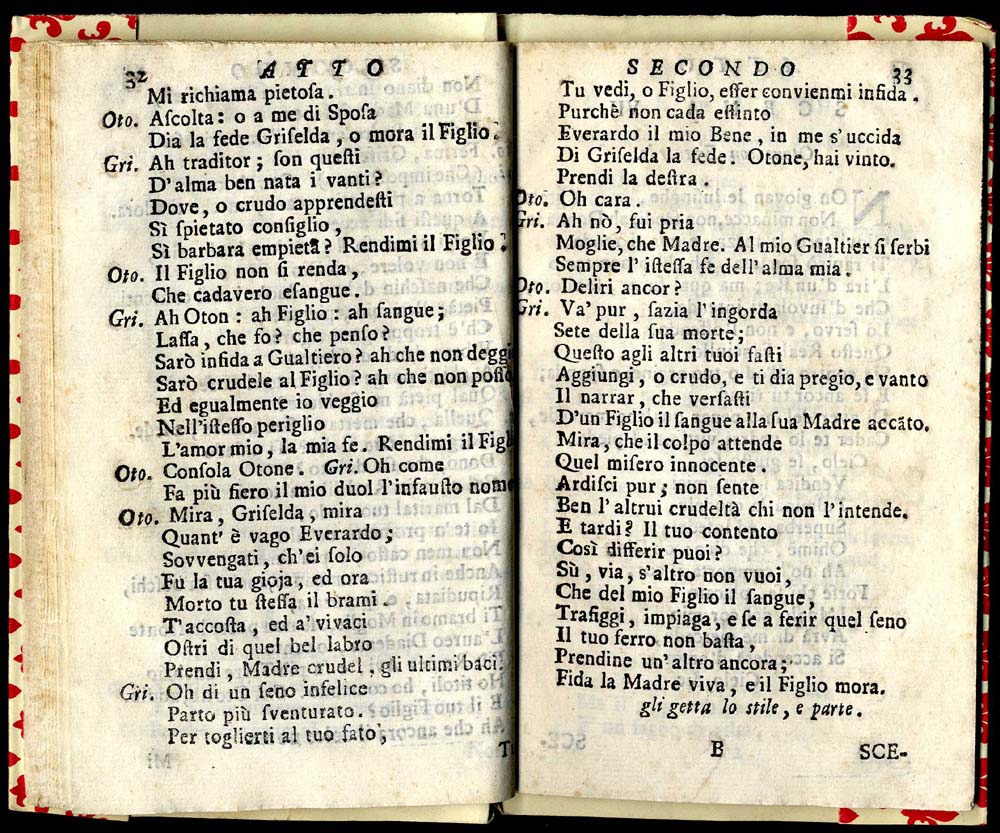 32 ATTO
Mi richiama pietosa.
Oto. Ascolta: o a me di Sposa
Dia la fede Griselda, o mora il Figlio.
Gri. Ah traditor; son questi
D'alma ben nata i vanti?
Dove, o crudo apprendesti
Sì spietato consiglio,
Sì barbara empietà? Rendimi il Figlio.
Oto. Il Figlio non si renda,
Che cadavero esangue.
Gri. Ah Oton: ah Figlio: ah sangue;
Lassa, che fo? che penso?
Sarò infida a Gualtiero? ah che non deggi
Sarò crudele al Figlio? ah che non posso
Ed egualmente io veggio
Nell'istesso periglio
L'amor mio, la mia fe. Rendimi il Figl
Oto. Consola Otone. Gri. Oh come
Fa più fiero il mio duol l'infausto nome
Oto. Mira, Griselda, mira
Quant' è vago Everardo;
Sovvengati, ch'ei solo
Fu la tua gioja, ed ora
Morto tu stessa il brami.
T'accosta, ed a' vivaci
Ostri di quel bel labro
Prendi, Madre crudel, gli ultimi baci.
Gri. Oh di un seno infelice
Parto più sventurato.
Per toglierti al tuo fato,
Tu
SECONDO 33
Tu vedi, o Figlio, esser convienmi infida.
Purchè non cada estinto
Everardo il mio Bene, in me s'uccida
Di Griselda la fede. Otone, hai vinto.
Prendi la destra.
Oto. Oh cara.
Gri. Ah nò, fui pria
Moglie, che Madre. Al mio Gualtier si serbi
Sempre l' istessa fe dell' alma mia.
Oto. Deliri ancor?
Gri. Va' pur, sazia l'ingorda
Sete della sua morte;
Questo agli altri tuoi fasti
Aggiungi, o crudo, e ti dia pregio, e vanto
Il narrar, che versasti
D'un Figlio il sangue alla sua Madre accãto.
Mira, che il colpo attende
Quel misero innocente.
Ardisci pur; non sente
Ben l' altrui crudeltà chi non l'intende.
E tardi? Il tuo contento
Così differir puoi?
Sù, via, s'altro non vuoi,
Che del mio Figlio il sangue,
Trafiggi, impiaga, e se a ferir quel seno
Il tuo ferro non basta,
Prendine un'altro ancora;
Fida la Madre viva, e il Figlio mora.
gli getta lo stile, e parte.
B SCE-